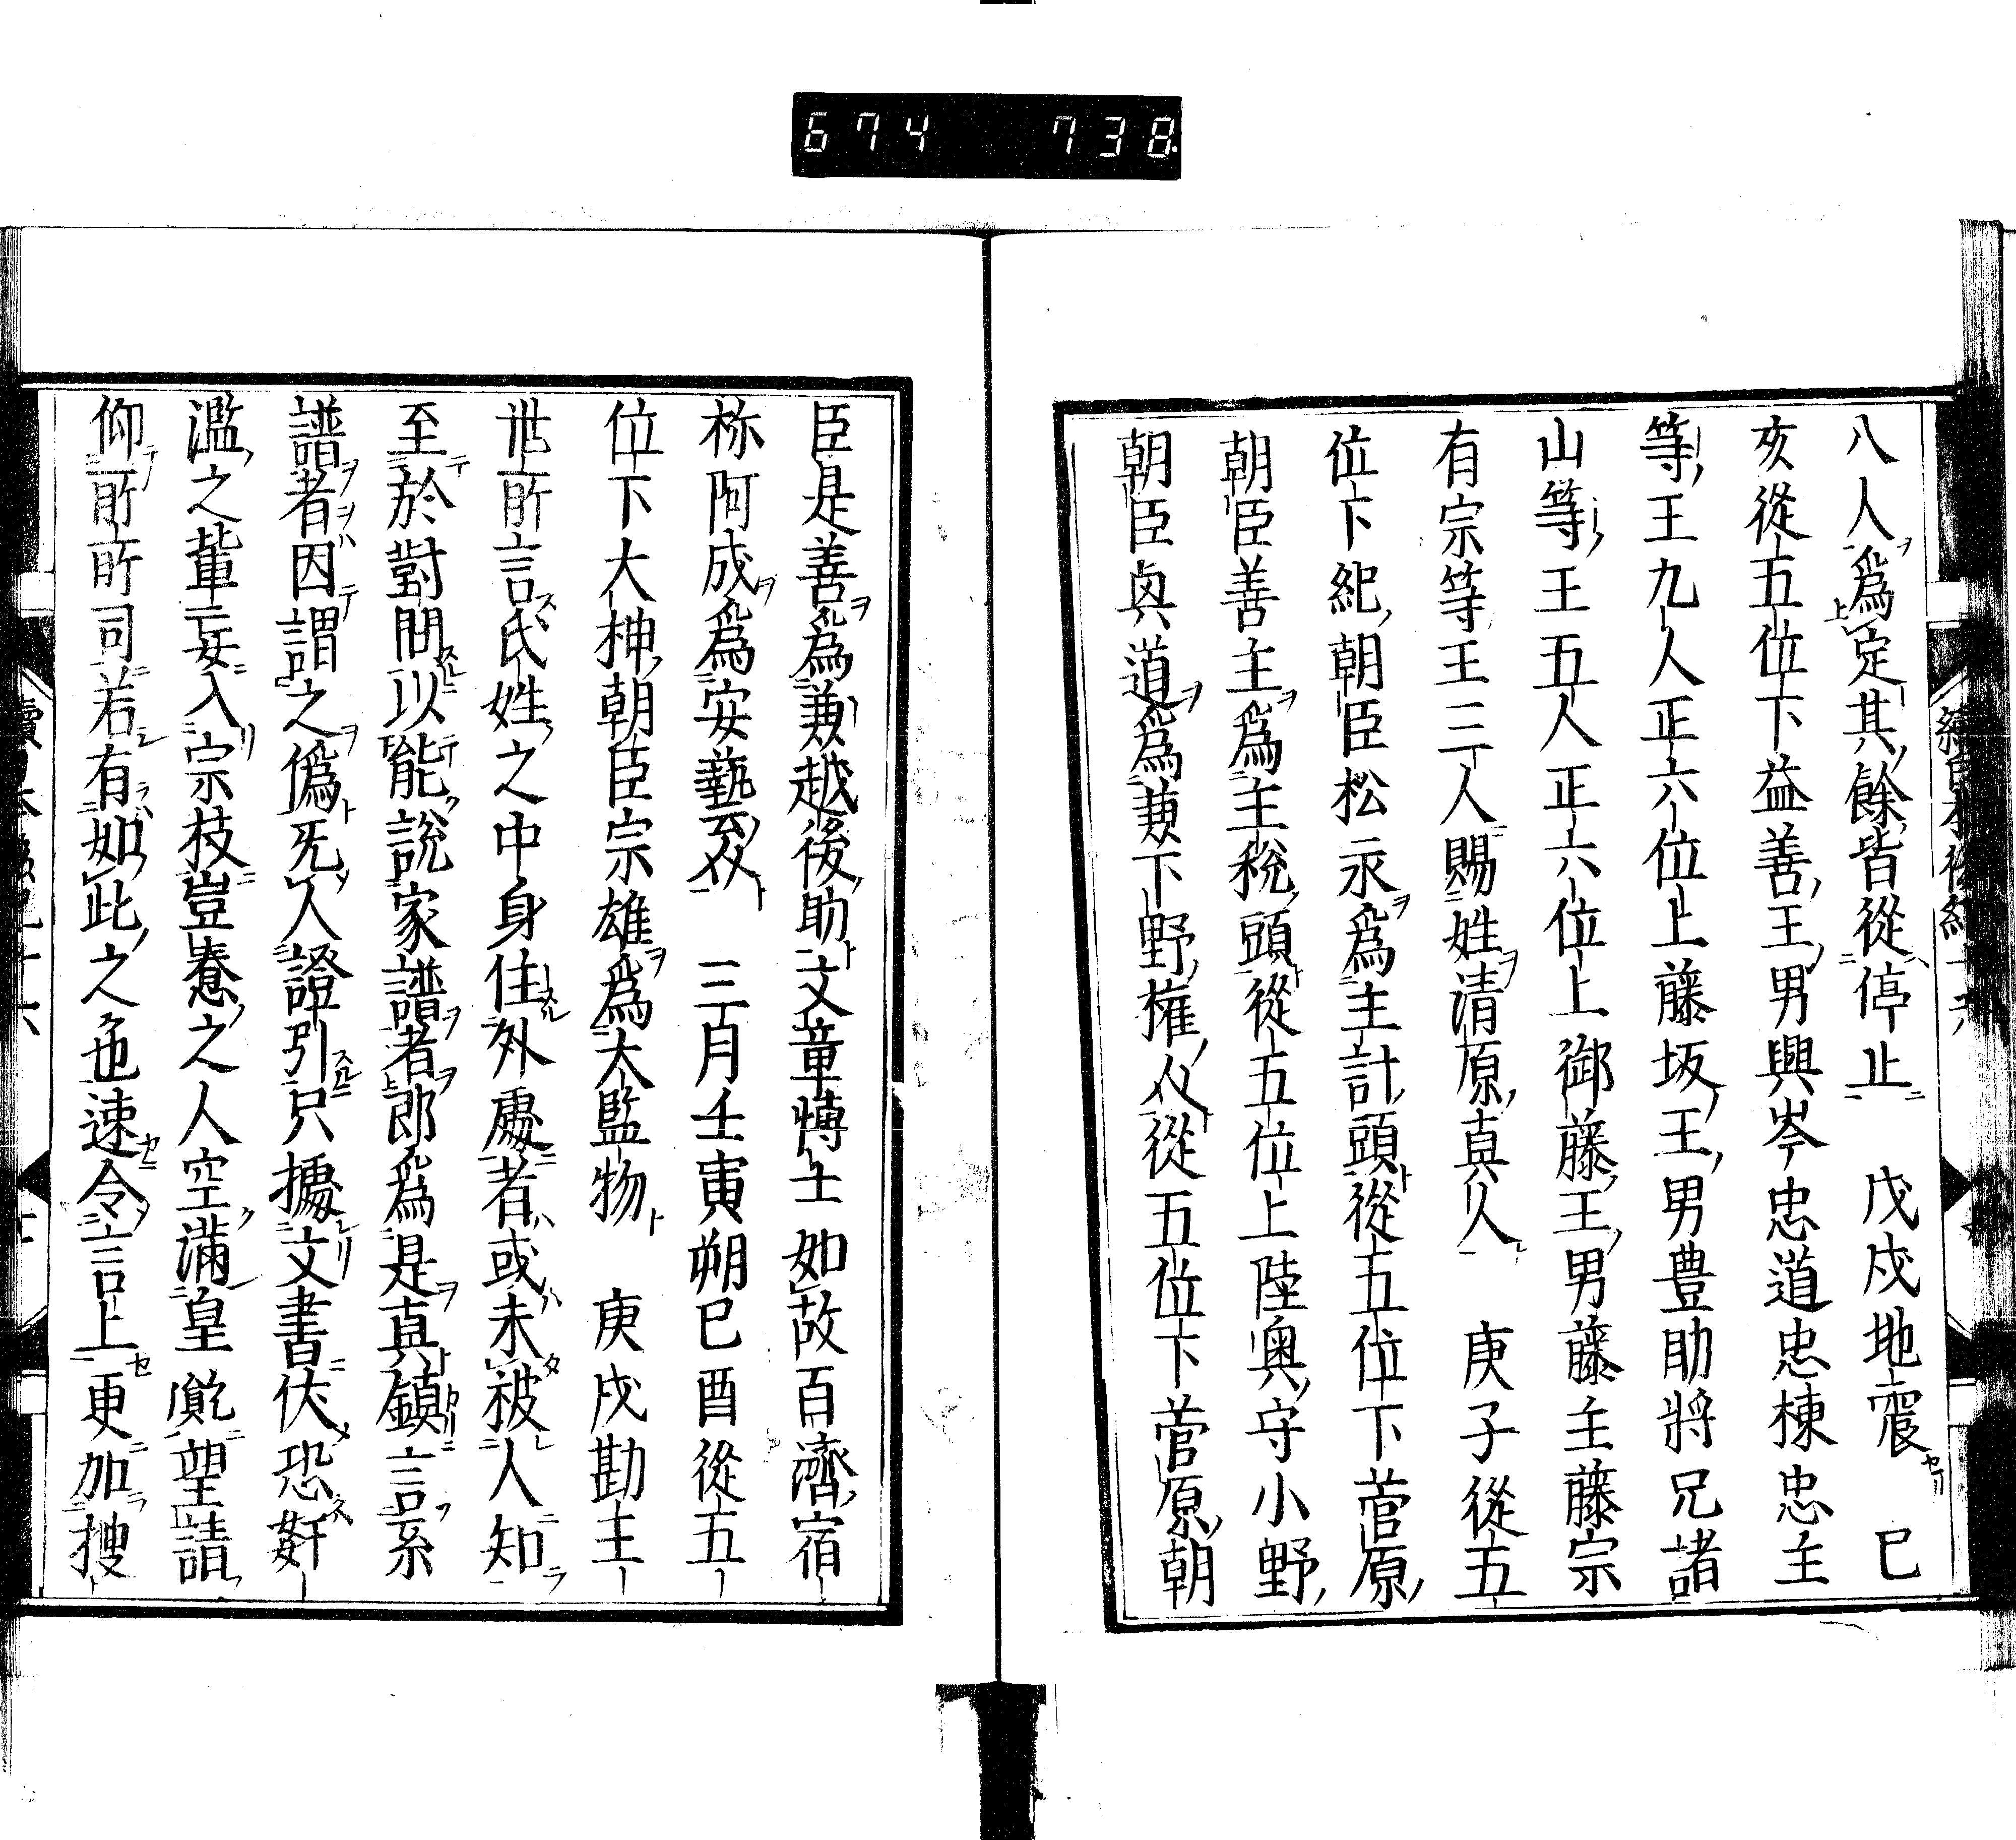 674 738
八人爲定其餘皆從停止 戊戌地震 已
亥從五位下益善王男興岑忠道忠棟忠主
等王九人正六位上藤坂王男豊助將兄諸
山等王五人正六位上御藤王男藤主藤宗
有宗等王三人賜姓清原真人 庚子從五
位下紀朝臣松永爲主計頭從五位下菅原
朝臣善主爲主税頭從五位上陸奥守小野
朝臣興道爲兼下野權介從五位下菅原朝
臣是善爲兼越後助文章博士如故百濟宿
祢阿成爲安藝介 三月壬寅朔己酉從五
位下大神朝臣宗雄爲大監物 庚戌勘主
世所言氏姓之中身住外處者或未被人知
至於對問以能説家譜者郎爲是真鎮言系
譜者因謂之僞死人證引只據文書伏恐奸
濫之輩妄入宗枝豈之人空滿皇望請
仰所所司若有如此之色速令言上更加搜